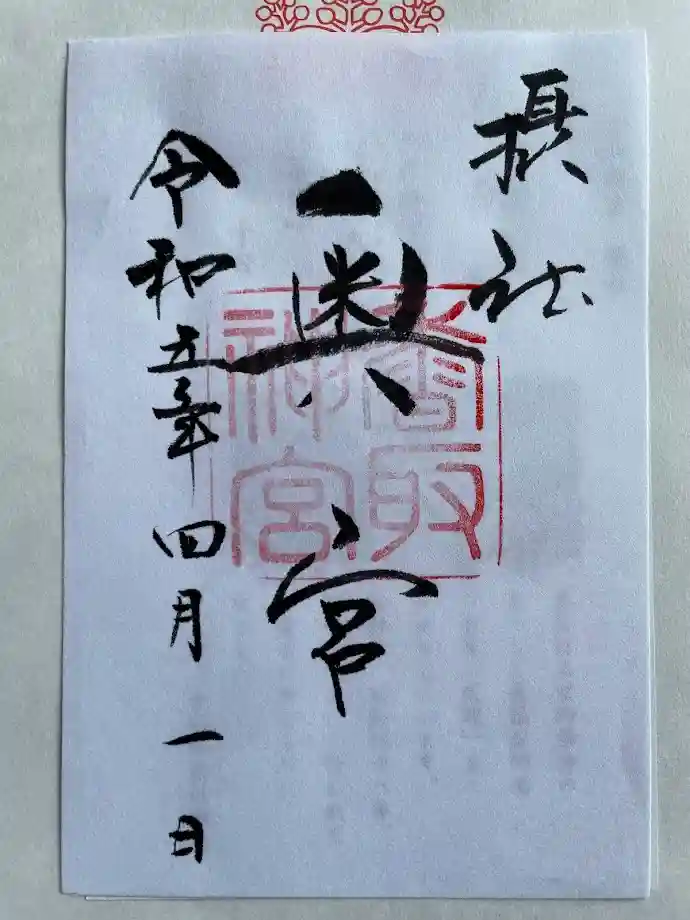 摂社
奥宮
香取神宮
令和五年四月一日